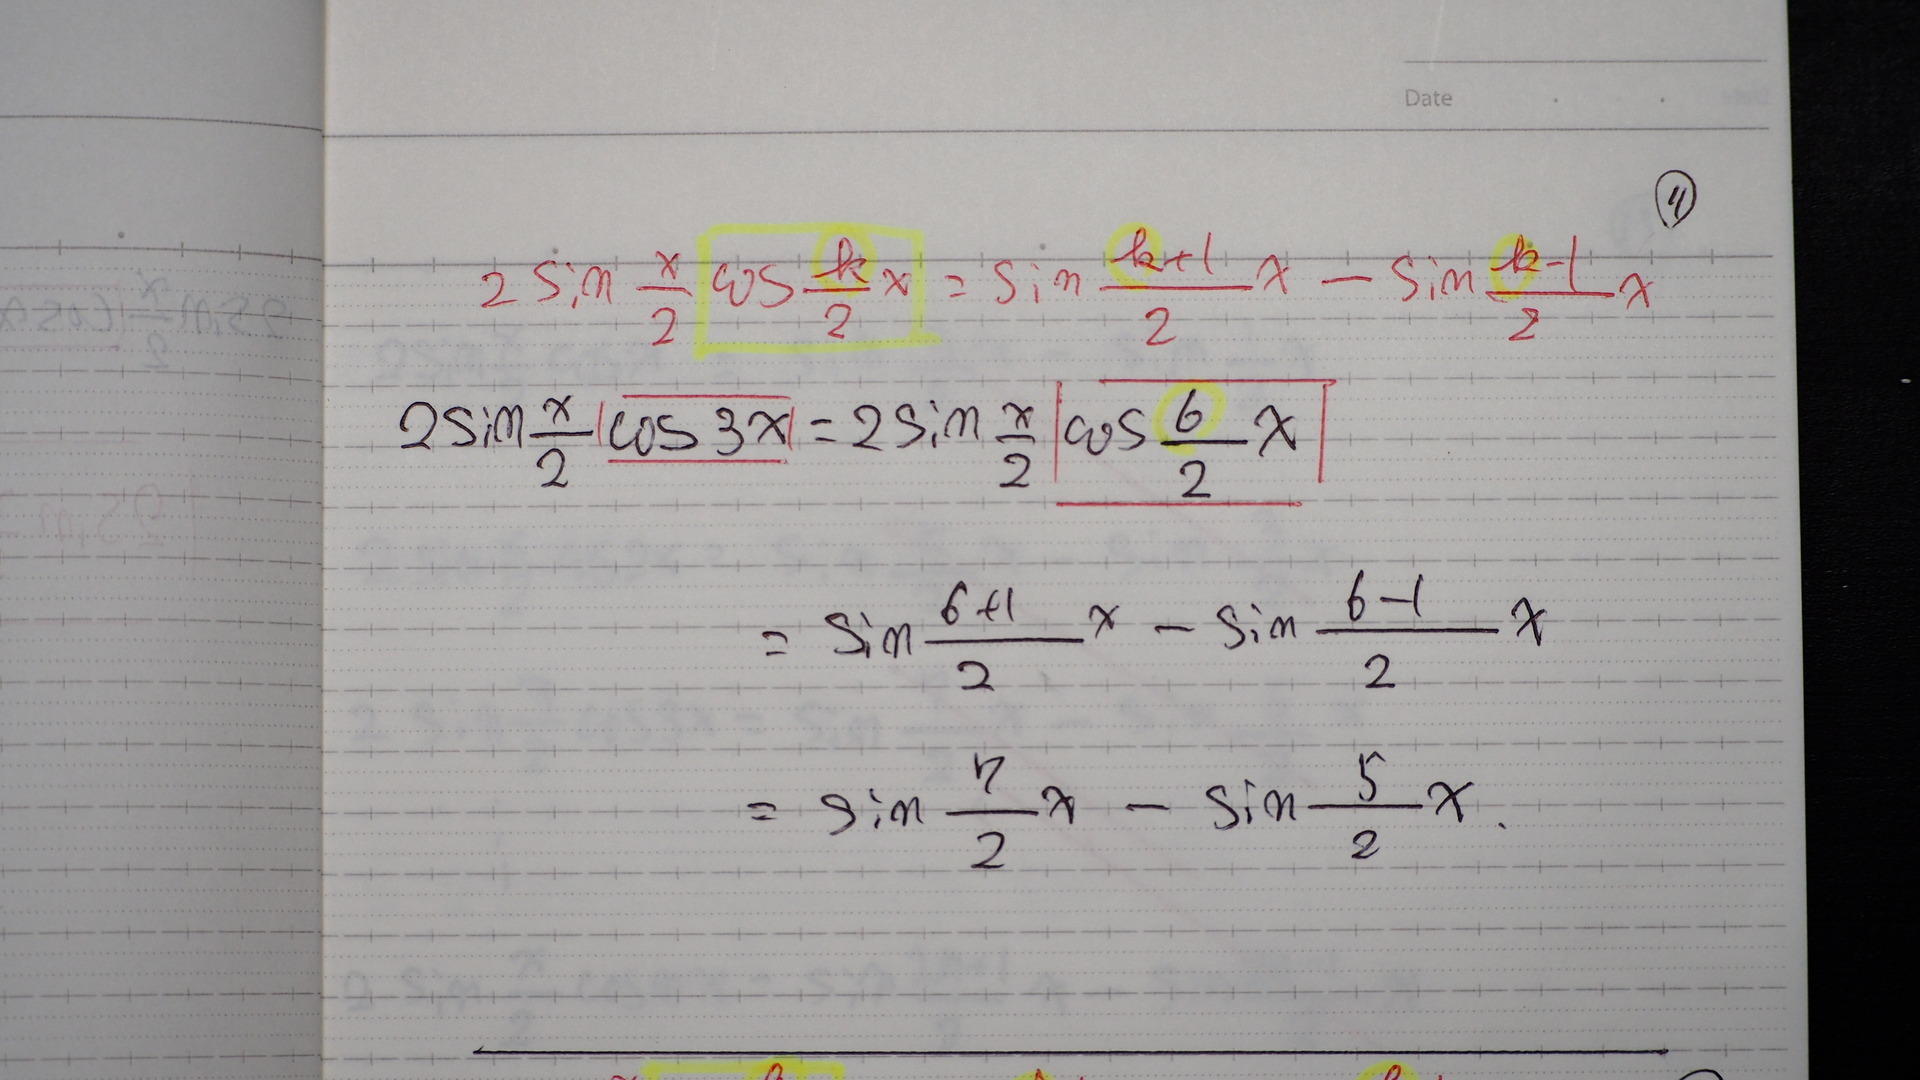 Date
④
2 sin x/2 cos k/2 x = sin (k+1)/2 x − sin (k-1)/2 x
2 sin x/2 cos 3x = 2 sin x/2 cos 6/2 x
= sin (6+1)/2 x − sin (6-1)/2 x
= sin 7/2 x − sin 5/2 x.